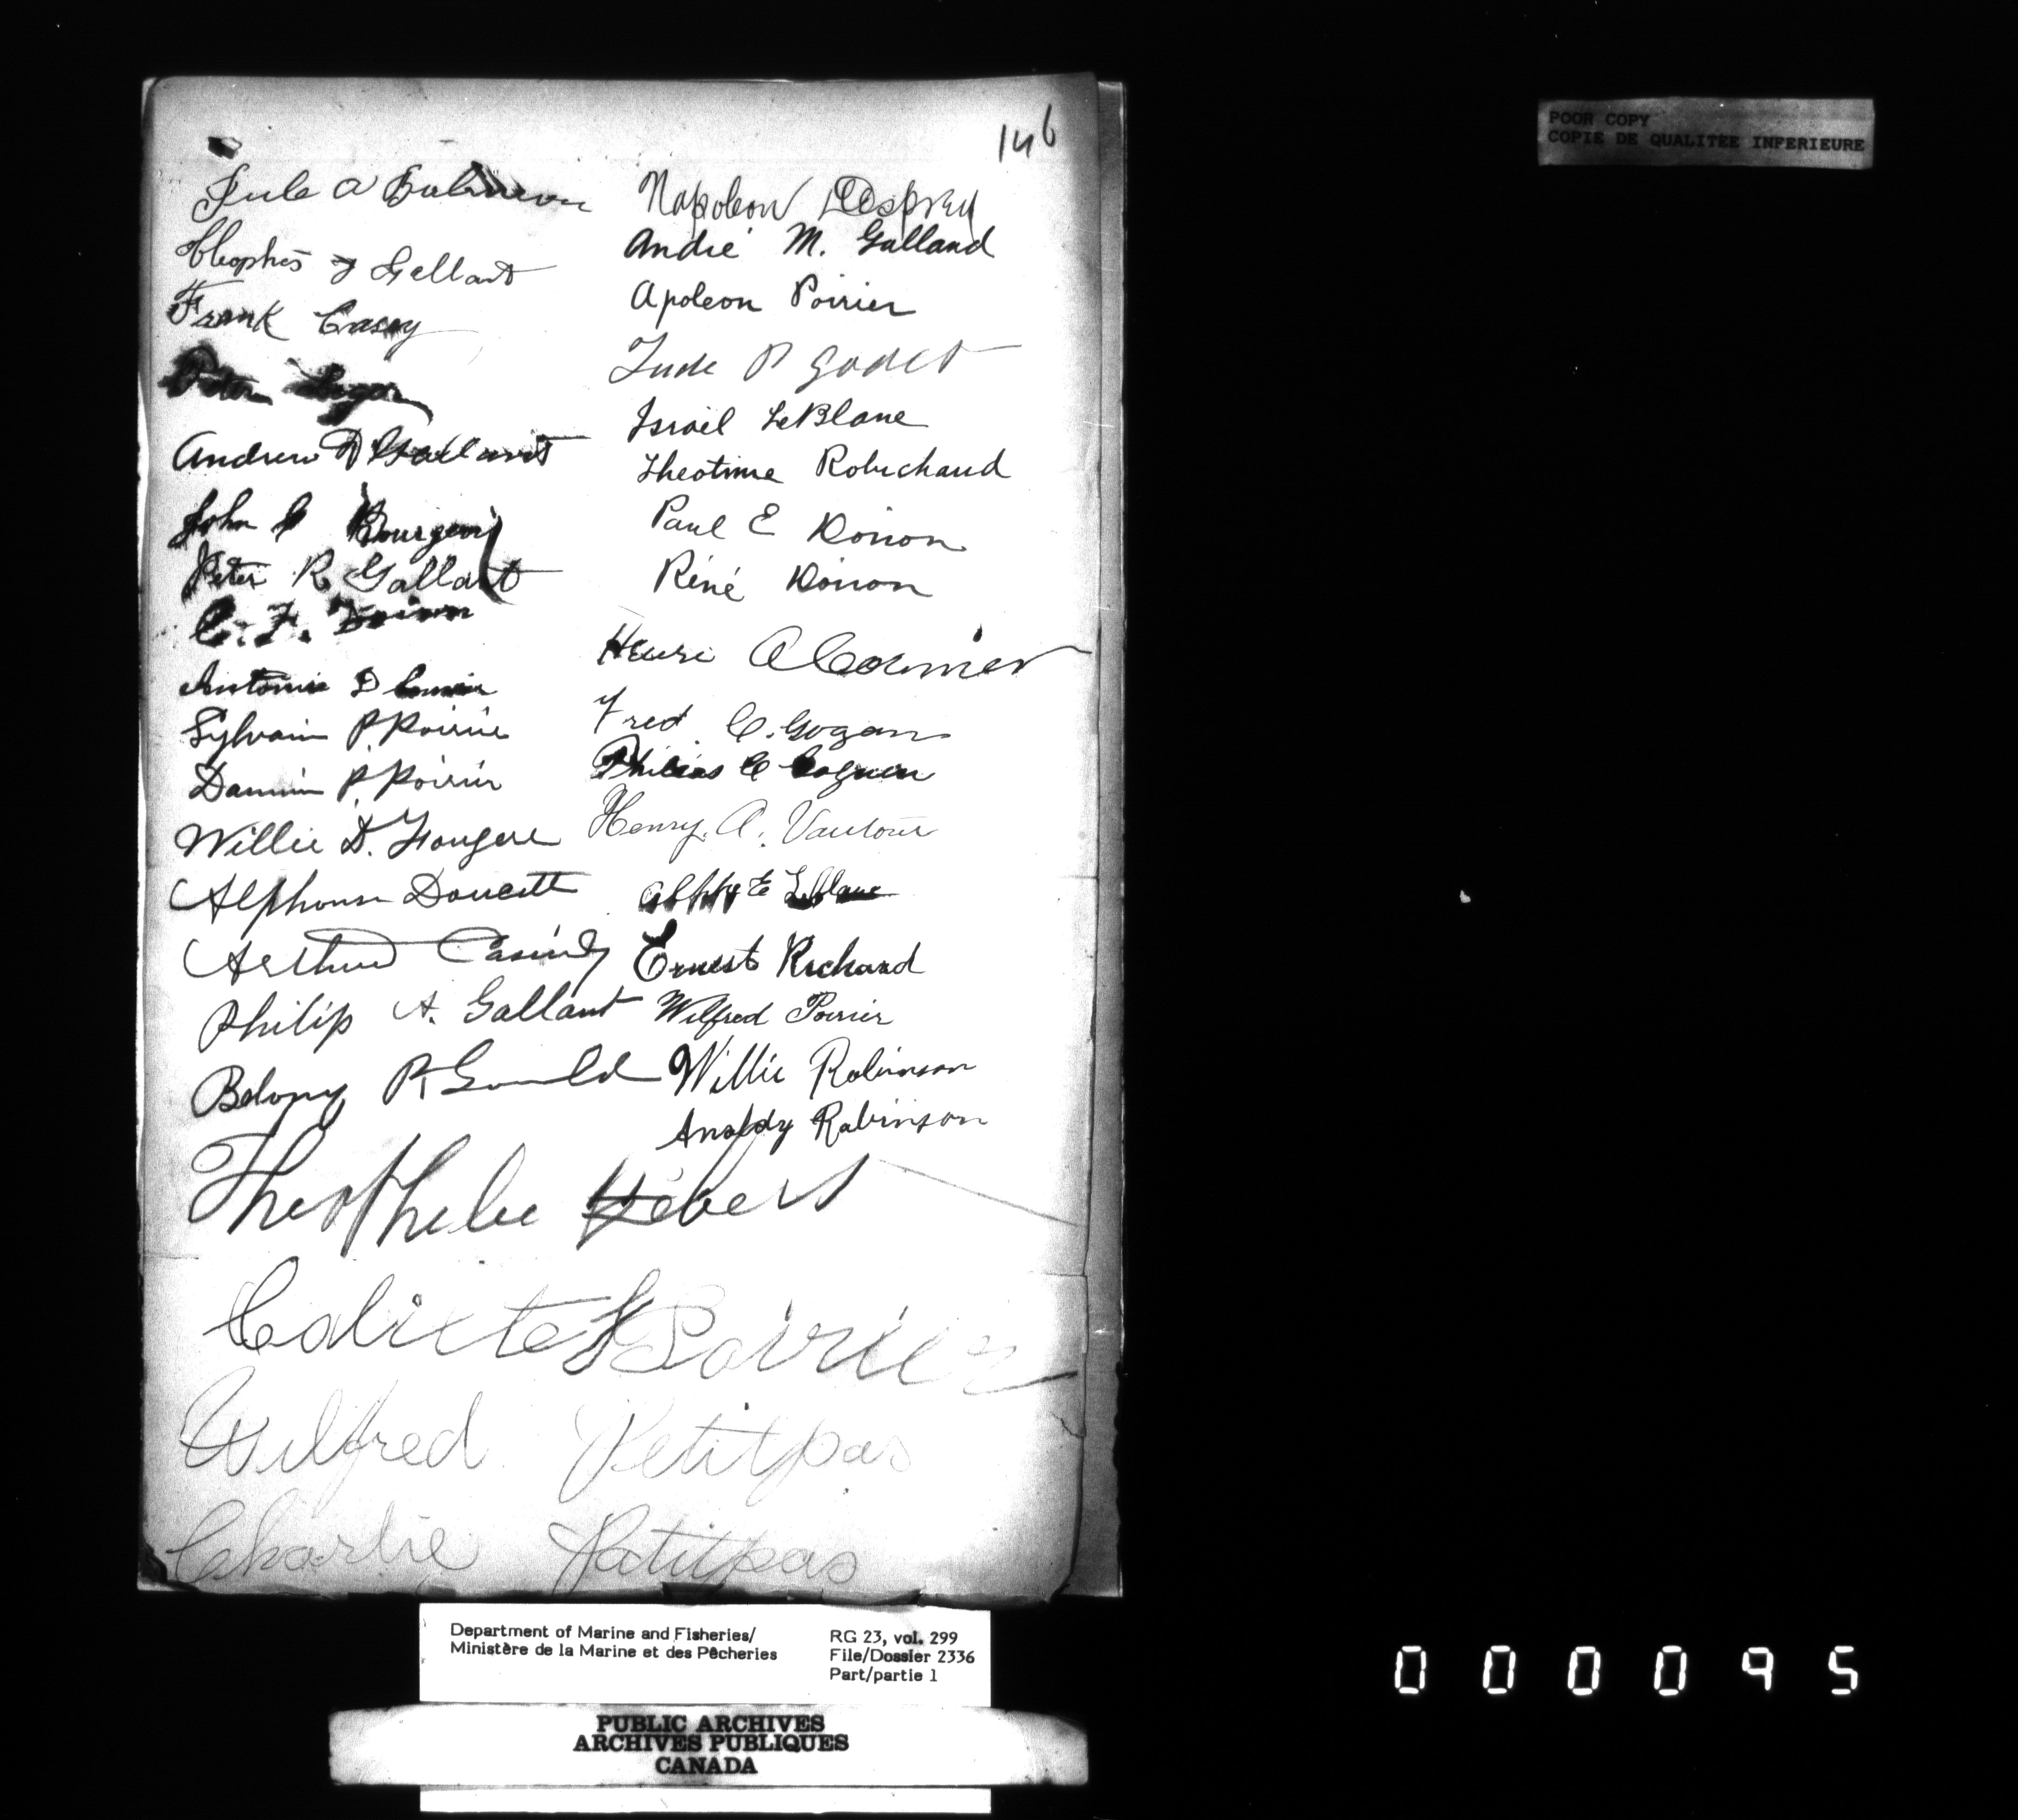 146
POOR COPY
COPIE DE QUALITEE INFERIEURE
Jule A
Cleophés J Gallant
Frank Casey
Peter Leger
Andrew D Gallant
John C Bourgeois
Peter R. Gallant
C. F. Doiron
Antonie D
Sylvain P. Poirier
Damien P. Poirier
Willie D. Fougere
Alphonse Doucett
Arthur
Philip A. Gallant
Belony R
Napoleon
André M. Galland
Apoleon Poirier
Jude P Godet
Israel LeBlanc
Theotime Robichaud
Paul E Doiron
Réné Doiron
Henri A Cormier
Fred C. Gogan
Philias C
Henry. A. Vautour
E Leblanc
Ernest Richard
Wilfred Poirier
Willie Robinson
Robinson
Hébert
Calixte Poirier
Wilfred Petitpas
Charlie Patitpas
Department of Marine and Fisheries/
Ministère de la Marine et des Pêcheries
RG 23, vol. 299
File/Dossier 2336
Part/partie 1
PUBLIC ARCHIVES
ARCHIVES PUBLIQUES
CANADA
000095